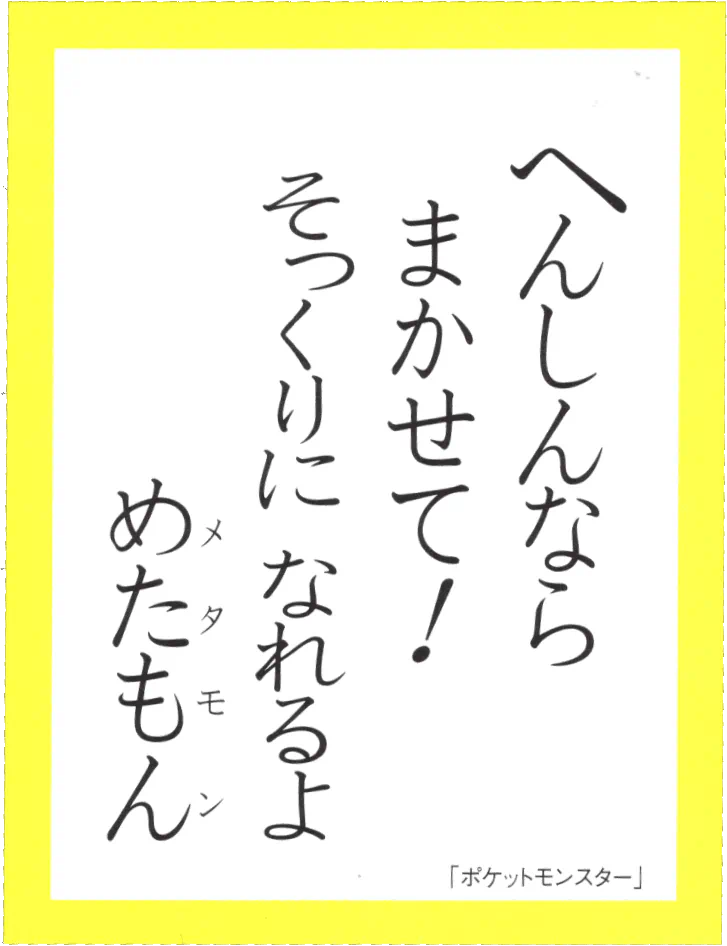 へんしんなら
まかせて！
そっくりに なれるよ
めたもん
メタモン
「ポケットモンスター」